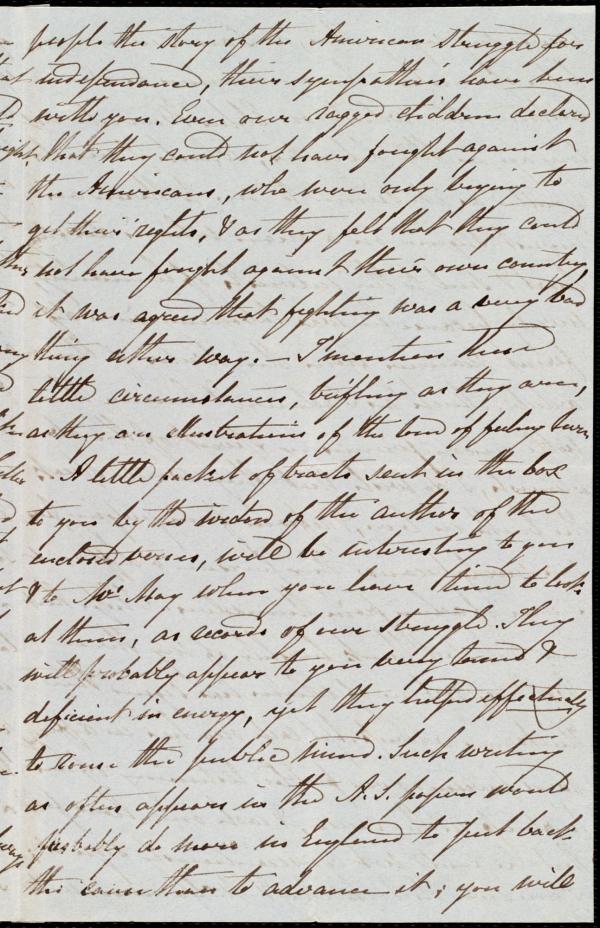 people the story of the American struggle for
independance, their sympathies have been
with you. Even our ragged children declared
that they could not have fought against
the Americans, who were only trying to
get their rights, & as they felt that they could
not have fought against their own country,
it was agreed that fighting was a very bad
thing either way. — I mention these
little circumstances, trifling as they are,
as they are illustrations of the tone of feeling here.
A little packet of tracts sent in the box
to you by the widow of the author of the
enclosed verses, will be interesting to you
& to Mr. May when you have time to look
at them, as records of our struggle. They
will probably appear to you very tame &
deficient in energy, yet they helped effectively
to rouse the public mind. Such writing
as often appears in the A. S. papers would
probably do more in England to put back
the cause than to advance it; you will